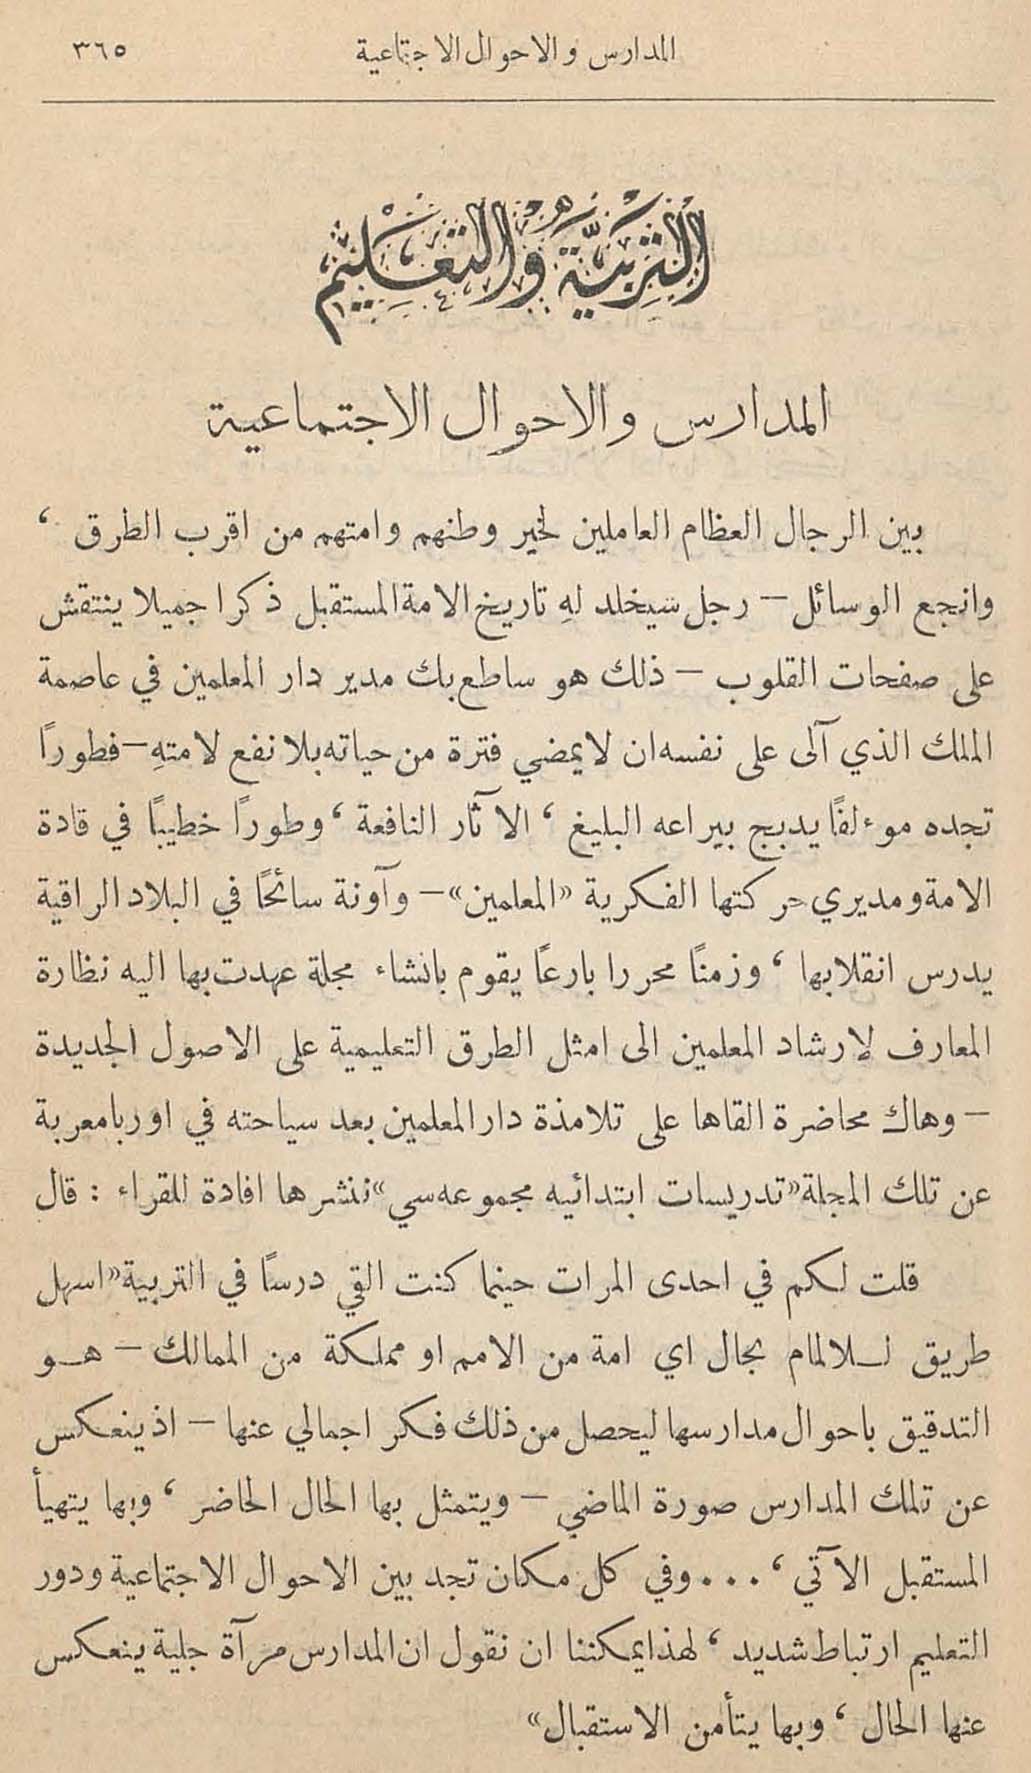 المدارس والاحوال الاجتماعية ٣٦٥
التربية والتعليم
المدارس والاحوال الاجتماعية
بين الرجال العظام العاملين لخير وطنهم وامتهم من اقرب الطرق ،
وانجع الوسائل — رجل سيخلد لهِ تاريخ الامة المستقبل ذكرا جميلا ينتقش
على صفحات القلوب — ذلك هو ساطع بك مدير دار المعلمين في عاصمة
الملك الذي آلى على نفسه ان لا يمضي فترة من حياته بلا نفع لامتهِ — فطوراً
تجده موءلفاً يدبج بيراعه البليغ ، الآثار النافعة ، وطوراً خطيباً في قادة
الامة ومديري حركتها الفكرية «المعلمين» — وآونة سائحاً في البلاد الراقية
يدرس انقلابها ، وزمناً محررا بارعاً يقوم بانشاء مجلة عهدت بها اليه نظارة
المعارف لارشاد المعلمين الى امثل الطرق التعليمية على الاصول الجديدة
— وهاك محاضرة القاها على تلامذة دار المعلمين بعد سياحته في اوربا معربة
عن تلك المجلة «تدريسات ابتدائيه مجموعه سي» ننشرها افادة للقراء : قال
قلت لكم في احدى المرات حينما كنت القي درساً في التربية «اسهل
طريق للالمام بحال اي امة من الامم او مملكة من الممالك — هو
التدقيق باحوال مدارسها ليحصل من ذلك فكر اجمالي عنها — اذ ينعكس
عن تلك المدارس صورة الماضي — ويتمثل بها الحال الحاضر ، وبها يتهيأ
المستقبل الآتي ، ... وفي كل مكان تجد بين الاحوال الاجتماعية ودور
التعليم ارتباط شديد ، لهذا يمكننا ان نقول ان المدارس مرآة جلية ينعكس
عنها الحال ، وبها يتأمن الاستقبال»